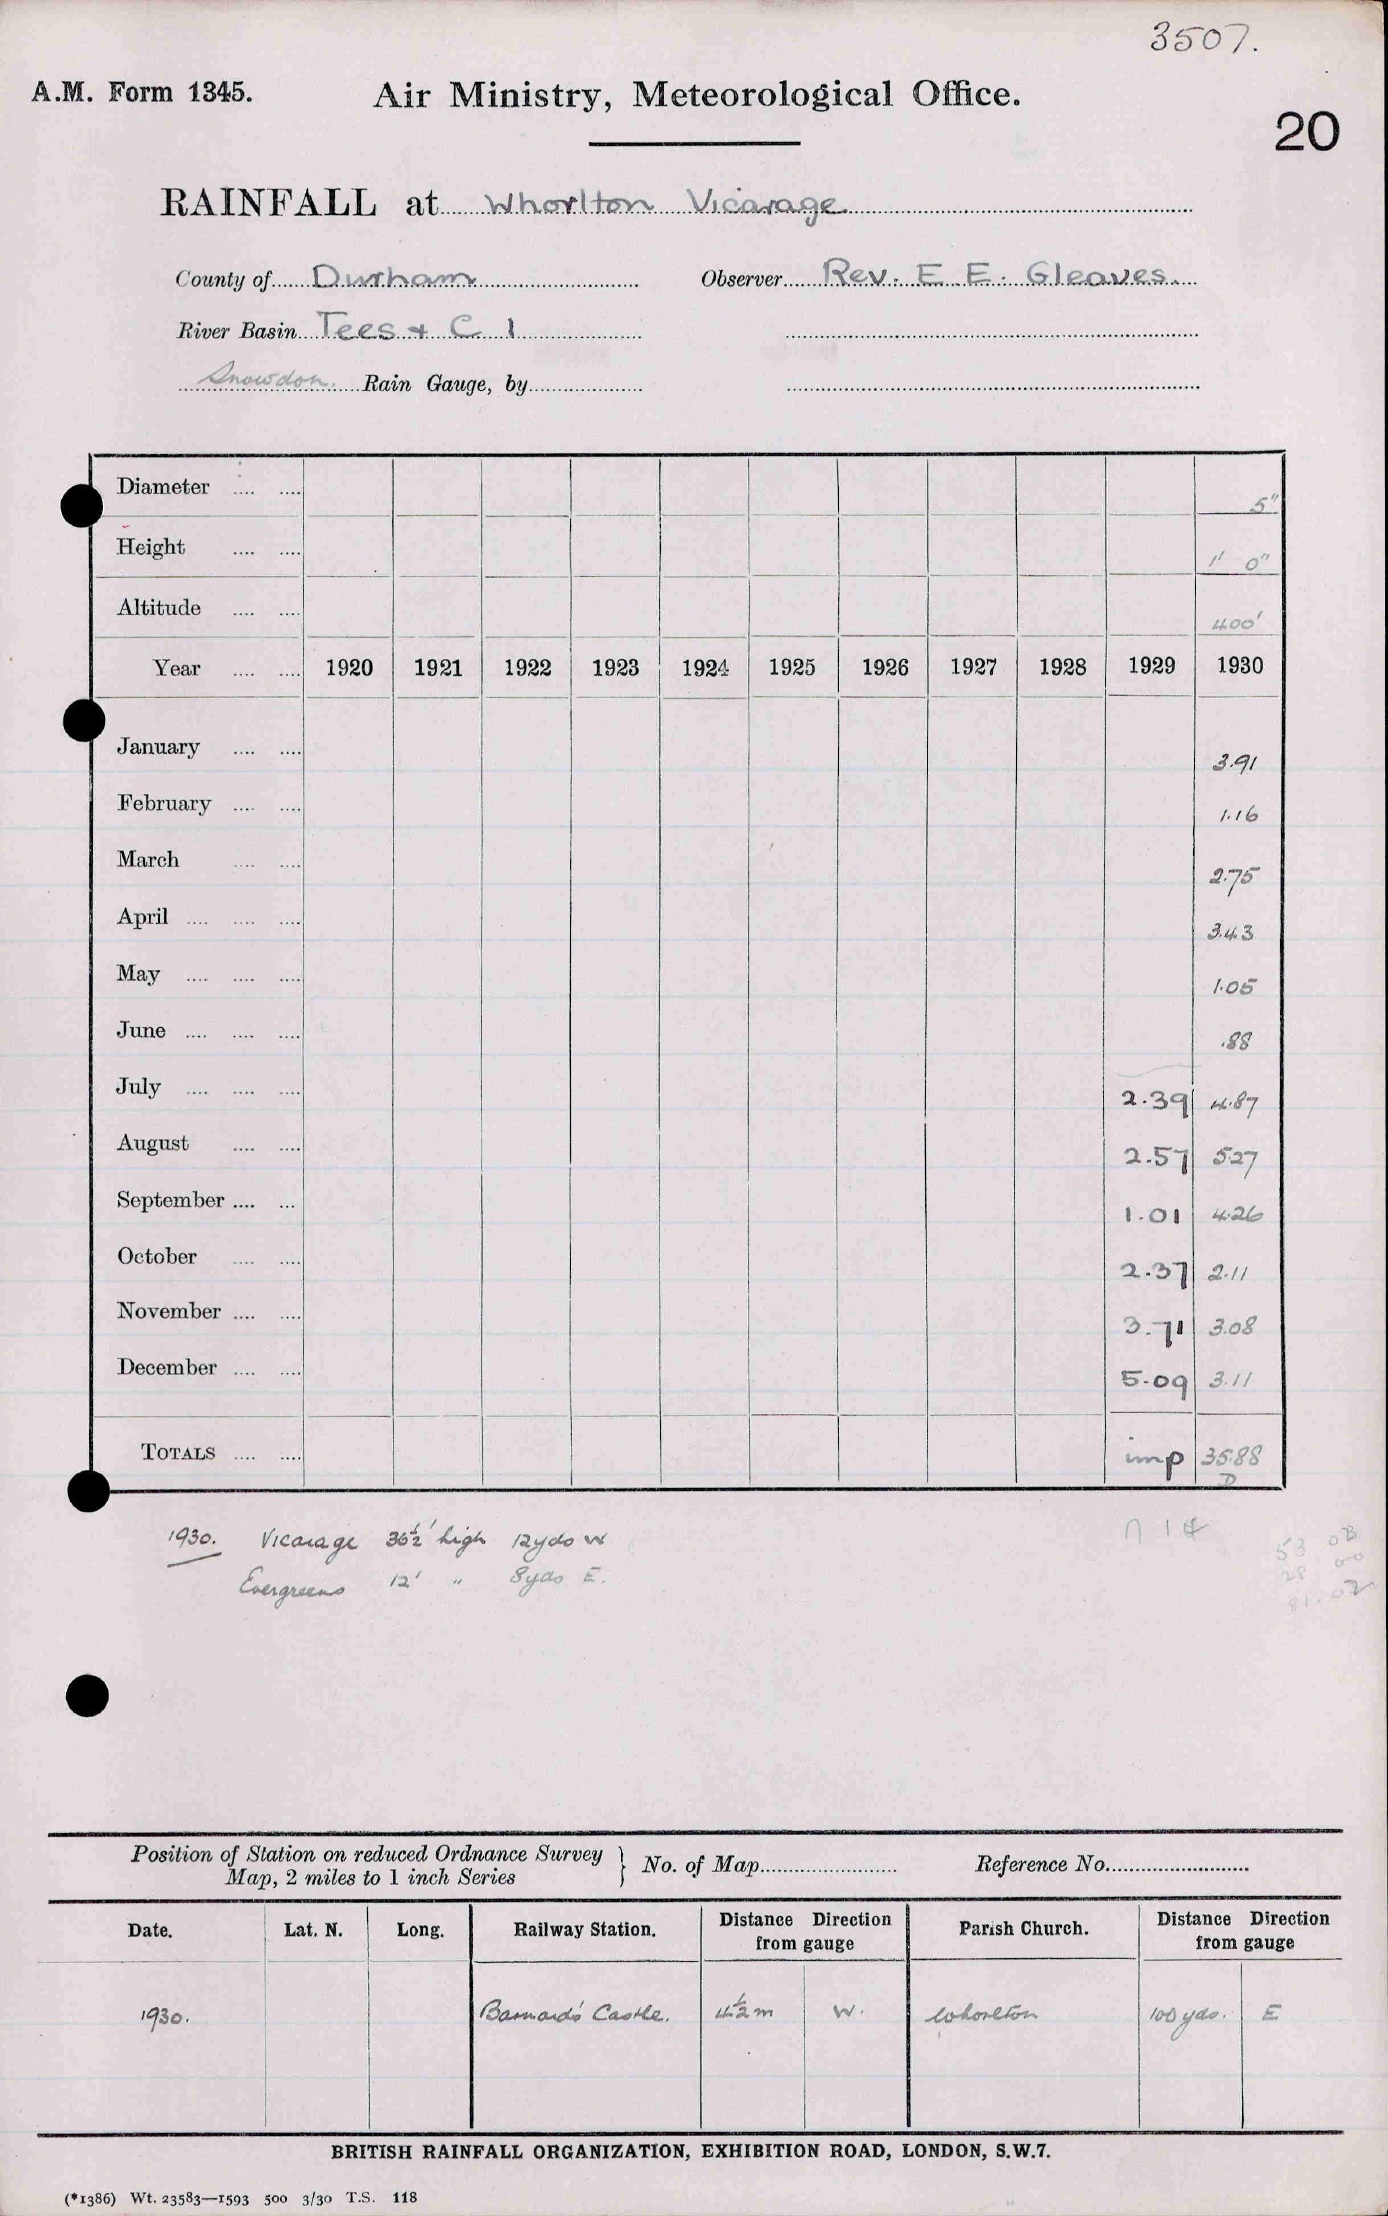 3507.
A.M. Form 1345. Air Ministry, Meteorological Office.
20
RAINFALL at Whorlton Vicarage
County of Durham Observer Rev. E. E. Gleaves.
River Basin Tees + C 1
Snowdon Rain Gauge, by
Diameter .... .... 5"
Height .... .... 1' 0"
Altitude .... .... 400'
Year .... .... 1920 1921 1922 1923 1924 1925 1926 1927 1928 1929 1930
January .... .... 3.91
February .... .... 1.16
March .... .... 2.75
April .... .... .... 3.43
May .... .... .... 1.05
June .... .... .... .88
July .... .... .... 2.39 4.87
August .... .... 2.57 5.27
September .... ... 1.01 4.26
October .... .... 2.37 2.11
November .... .... 3.71 3.08
December .... .... 5.09 3.11
TOTALS .... .... imp 35.88
D
1930. Vicarage 36½' high 12yds W
Evergreens 12' " 8yds E.
53 08
28 00
81.02
Position of Station on reduced Ordnance Survey
Map, 2 miles to 1 inch Series } No. of Map Reference No.
Date. Lat. N. Long. Railway Station. Distance Direction from gauge Parish Church. Distance Direction from gauge
1930. Barnard's Castle. 4½m W. Whorlton 100 yds. E
BRITISH RAINFALL ORGANIZATION, EXHIBITION ROAD, LONDON, S.W.7.
(*1386) Wt. 23583—1593 500 3/30 T.S. 118